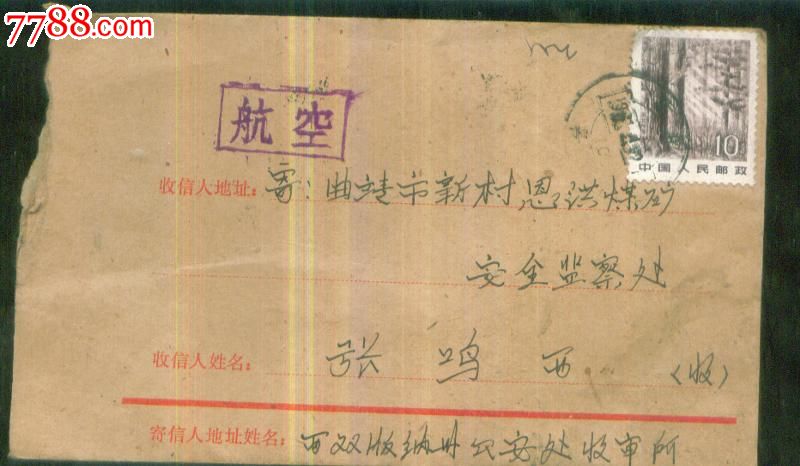 7788.com
航空
10分
中国人民邮政
收信人地址：寄：曲靖市新村恩洪煤矿
安全监察处
收信人姓名：张鸣西（收）
寄信人地址姓名：西双版纳州公安处收审所